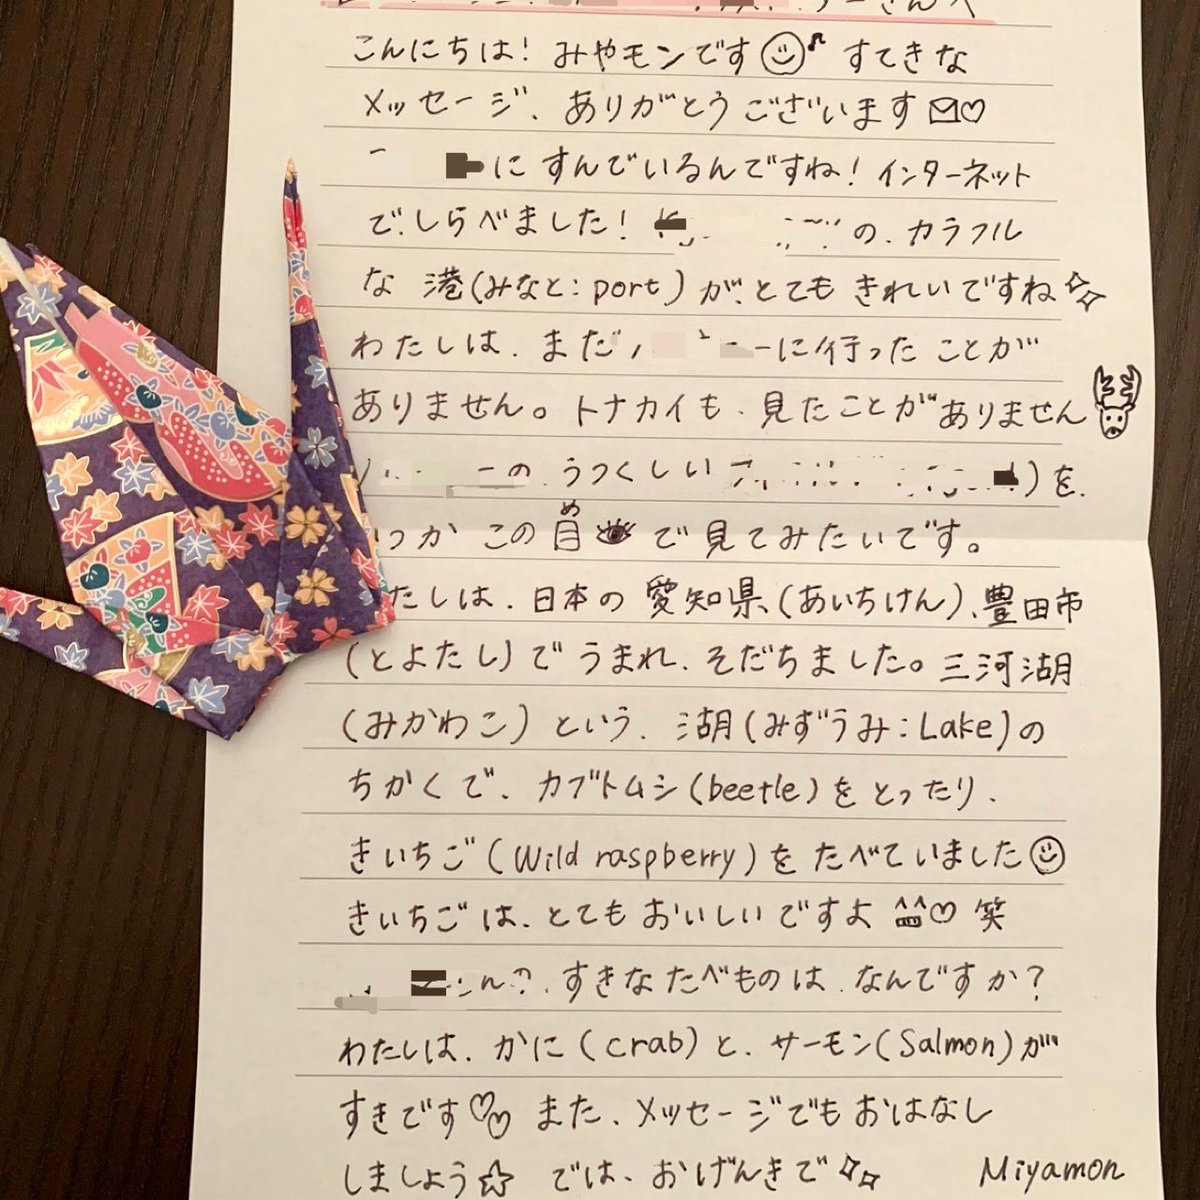 さんへ
こんにちは！ みやモンです すてきな
メッセージ、ありがとうございます
に すんでいるんですね！ インターネット
でしらべました！ の、カラフル
な 港(みなと：port)が、とても きれいですね
わたしは、まだ に行った ことが
ありません。トナカイも、見たことがありません
の うつくしい を、
っか この 目 で 見てみたいです。
め
たしは、日本の 愛知県(あいちけん)、豊田市
(とよたし)で うまれ、そだちました。三河湖
(みかわこ) という、湖(みずうみ：Lake)の
ちかくで、カブトムシ(beetle)を とったり、
きいちご(Wild raspberry)を たべていました
きいちごは、とても おいしいですよ 笑
すきな たべものは、なんですか？
わたしは、かに(crab)と、サーモン(Salmon)が
すきです また、メッセージでも おはなし
しましょう☆ では、おげんきで Miyamon